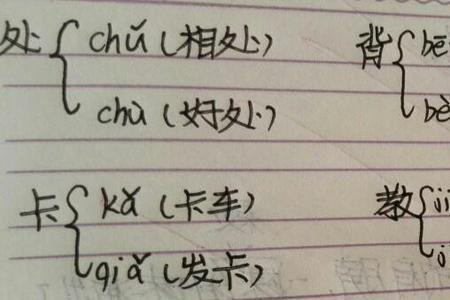 处 chǔ (相处) 背 bē
chù (好处) bè
卡 kǎ (卡车) 教
qiǎ (发卡)